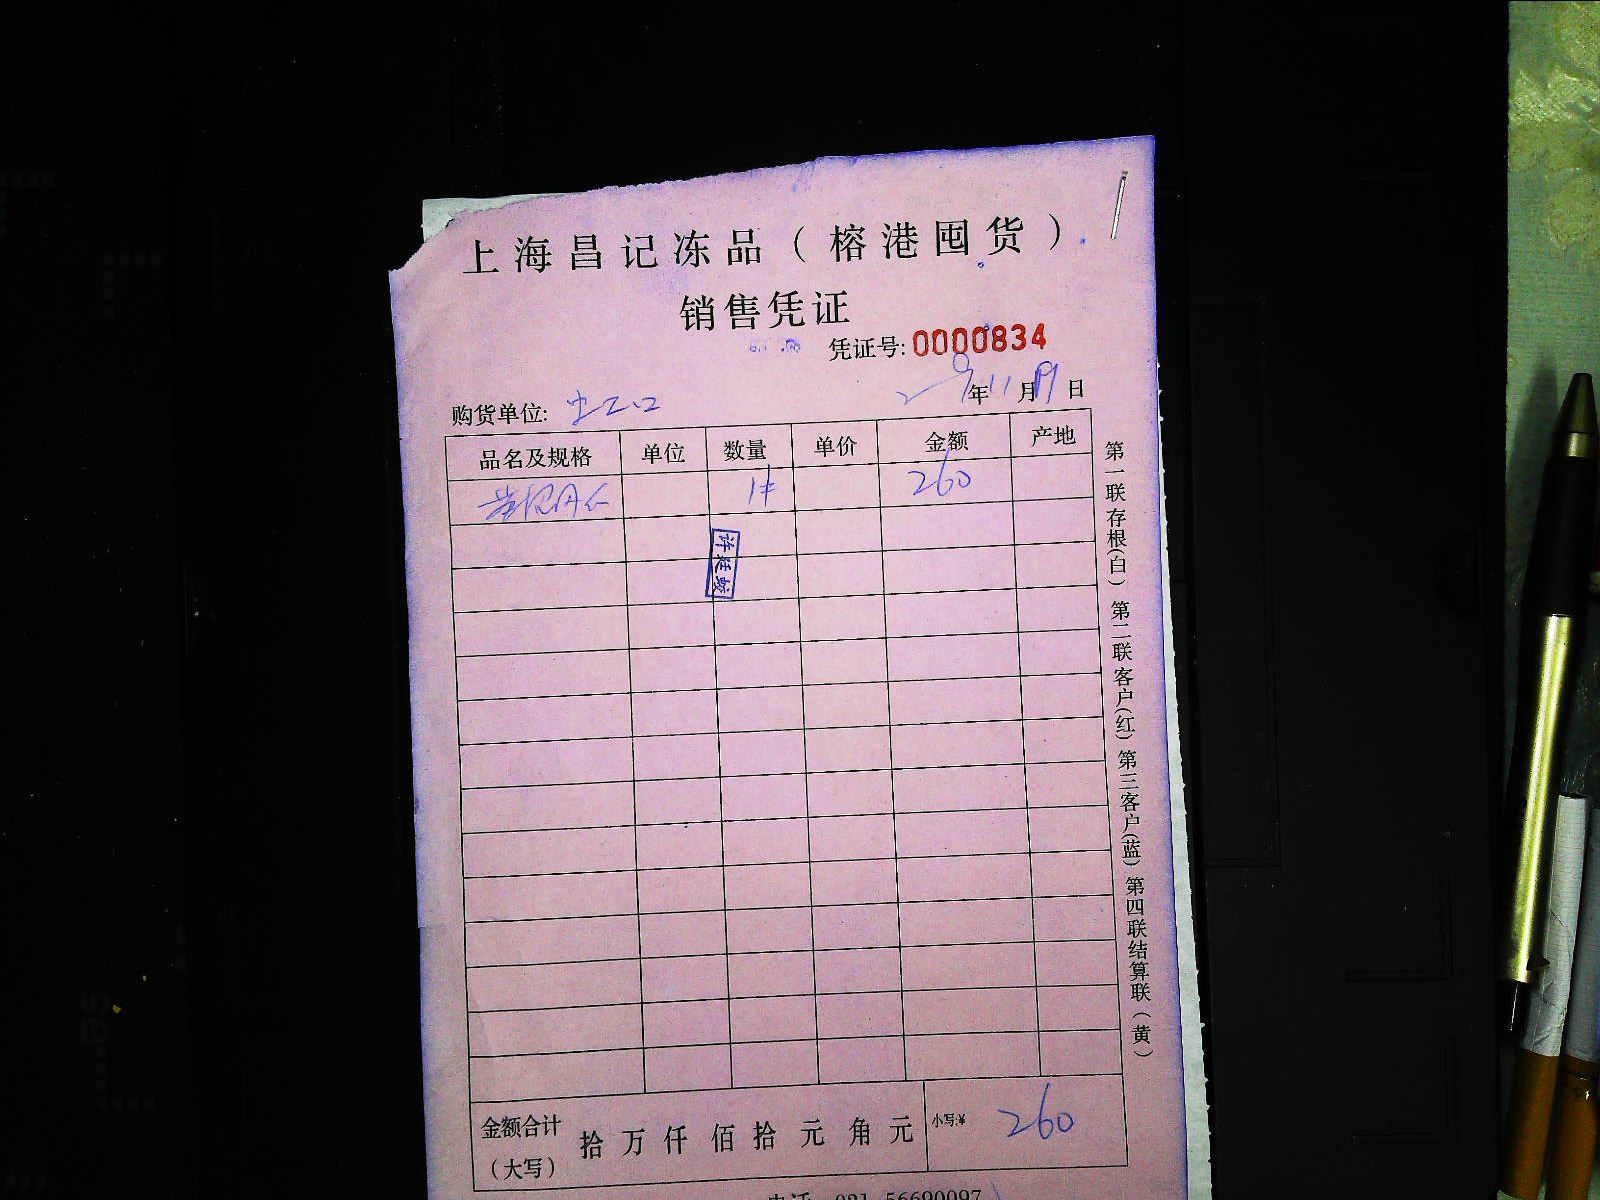 上海昌记冻品（榕港囤货）
销售凭证
凭证号:0000834
购货单位: 年11月19日
品名及规格 单位 数量 单价 金额 产地
1# 260
许廷蛟
第一联存根(白) 第二联客户(红) 第三客户(蓝) 第四联结算联(黄)
金额合计(大写) 拾万仟佰拾元角元 小写:¥ 260
电话 021-56690097